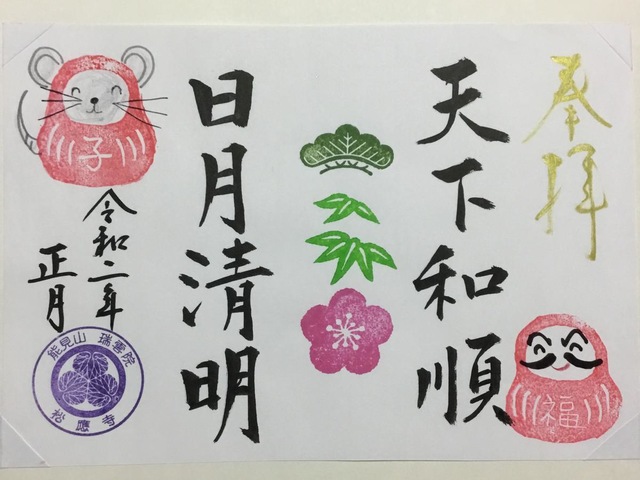 奉拝
天下和順
日月清明
令和二年
正月
子
福
能見山 瑞雲院
松應寺